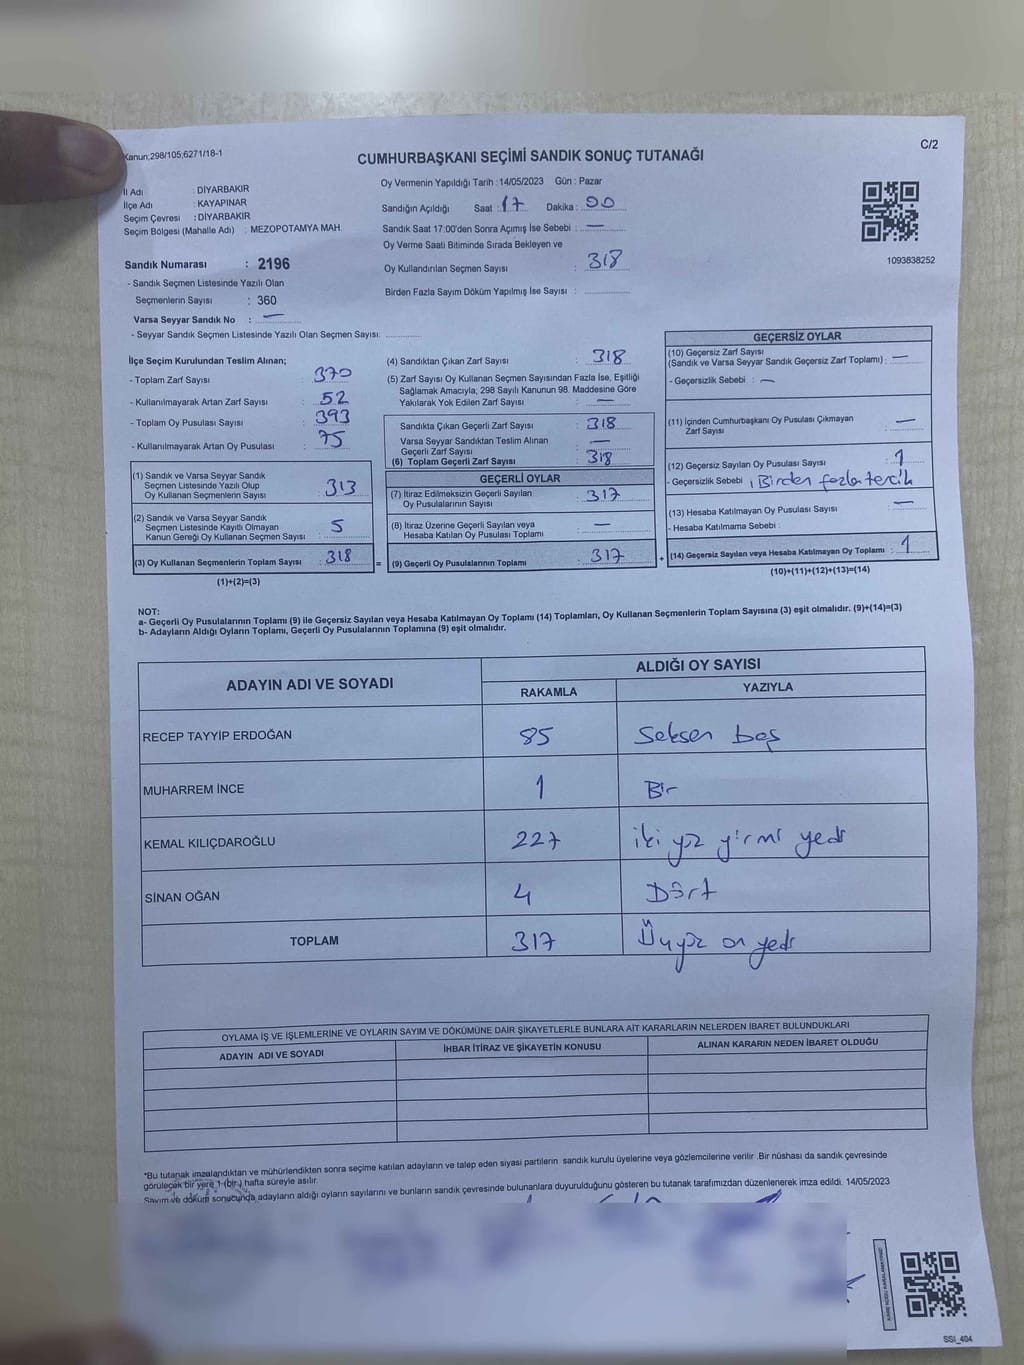 Kanun:298/105;6271/18-1
C/2
CUMHURBAŞKANI SEÇİMİ SANDIK SONUÇ TUTANAĞI
İl Adı : DİYARBAKIR
İlçe Adı : KAYAPINAR
Seçim Çevresi : DİYARBAKIR
Seçim Bölgesi (Mahalle Adı) : MEZOPOTAMYA MAH.
Sandık Numarası : 2196
- Sandık Seçmen Listesinde Yazılı Olan
Seçmenlerin Sayısı : 360
Varsa Seyyar Sandık No : —
- Seyyar Sandık Seçmen Listesinde Yazılı Olan Seçmen Sayısı:
Oy Vermenin Yapıldığı Tarih : 14/05/2023 Gün : Pazar
Sandığın Açıldığı Saat : 17 Dakika : 00
Sandık Saat 17:00'den Sonra Açımış İse Sebebi : —
Oy Verme Saati Bitiminde Sırada Bekleyen ve
Oy Kullandırılan Seçmen Sayısı : 318
Birden Fazla Sayım Döküm Yapılmış İse Sayısı :
1093838252
İlçe Seçim Kurulundan Teslim Alınan;
- Toplam Zarf Sayısı : 370
- Kullanılmayarak Artan Zarf Sayısı : 52
- Toplam Oy Pusulası Sayısı : 393
- Kullanılmayarak Artan Oy Pusulası : 75
(1) Sandık ve Varsa Seyyar Sandık
Seçmen Listesinde Yazılı Olup
Oy Kullanan Seçmenlerin Sayısı : 313
(2) Sandık ve Varsa Seyyar Sandık
Seçmen Listesinde Kayıtlı Olmayan
Kanun Gereği Oy Kullanan Seçmen Sayısı : 5
(3) Oy Kullanan Seçmenlerin Toplam Sayısı : 318
(1)+(2)=(3)
(4) Sandıktan Çıkan Zarf Sayısı : 318
(5) Zarf Sayısı Oy Kullanan Seçmen Sayısından Fazla İse, Eşitliği
Sağlamak Amacıyla; 298 Sayılı Kanunun 98. Maddesine Göre
Yakılarak Yok Edilen Zarf Sayısı : —
Sandıkta Çıkan Geçerli Zarf Sayısı : 318
Varsa Seyyar Sandıktan Teslim Alınan
Geçerli Zarf Sayısı : —
(6) Toplam Geçerli Zarf Sayısı : 318
GEÇERLİ OYLAR
(7) İtiraz Edilmeksizin Geçerli Sayılan
Oy Pusulalarının Sayısı : 317
(8) İtiraz Üzerine Geçerli Sayılan veya
Hesaba Katılan Oy Pusulası Toplamı : —
= (9) Geçerli Oy Pusulalarının Toplamı : 317
GEÇERSİZ OYLAR
(10) Geçersiz Zarf Sayısı
(Sandık ve Varsa Seyyar Sandık Geçersiz Zarf Toplamı) : —
- Geçersizlik Sebebi : —
(11) İçinden Cumhurbaşkanı Oy Pusulası Çıkmayan
Zarf Sayısı : —
(12) Geçersiz Sayılan Oy Pusulası Sayısı : 1
- Geçersizlik Sebebi : Birden fazla tercih
(13) Hesaba Katılmayan Oy Pusulası Sayısı : —
- Hesaba Katılmama Sebebi :
+ (14) Geçersiz Sayılan veya Hesaba Katılmayan Oy Toplamı : 1
(10)+(11)+(12)+(13)=(14)
NOT:
a- Geçerli Oy Pusulalarının Toplamı (9) ile Geçersiz Sayılan veya Hesaba Katılmayan Oy Toplamı (14) Toplamları, Oy Kullanan Seçmenlerin Toplam Sayısına (3) eşit olmalıdır. (9)+(14)=(3)
b- Adayların Aldığı Oyların Toplamı, Geçerli Oy Pusulalarının Toplamına (9) eşit olmalıdır.
ADAYIN ADI VE SOYADI
ALDIĞI OY SAYISI
RAKAMLA YAZIYLA
RECEP TAYYİP ERDOĞAN 85 Seksen beş
MUHARREM İNCE 1 Bir
KEMAL KILIÇDAROĞLU 227 iki yüz yirmi yedi
SİNAN OĞAN 4 Dört
TOPLAM 317 Üçyüz on yedi
OYLAMA İŞ VE İŞLEMLERİNE VE OYLARIN SAYIM VE DÖKÜMÜNE DAİR ŞİKAYETLERLE BUNLARA AİT KARARLARIN NELERDEN İBARET BULUNDUKLARI
ADAYIN ADI VE SOYADI İHBAR İTİRAZ VE ŞİKAYETİN KONUSU ALINAN KARARIN NEDEN İBARET OLDUĞU
*Bu tutanak imzalandıktan ve mühürlendikten sonra seçime katılan adayların ve talep eden siyasi partilerin sandık kurulu üyelerine veya gözlemcilerine verilir .Bir nüshası da sandık çevresinde
görülecek bir yere 1 (bir) hafta süreyle asılır.
Sayım ve döküm sonucunda adayların aldığı oyların sayılarını ve bunların sandık çevresinde bulunanlara duyurulduğunu gösteren bu tutanak tarafımızdan düzenlenerek imza edildi. 14/05/2023
SSI_404